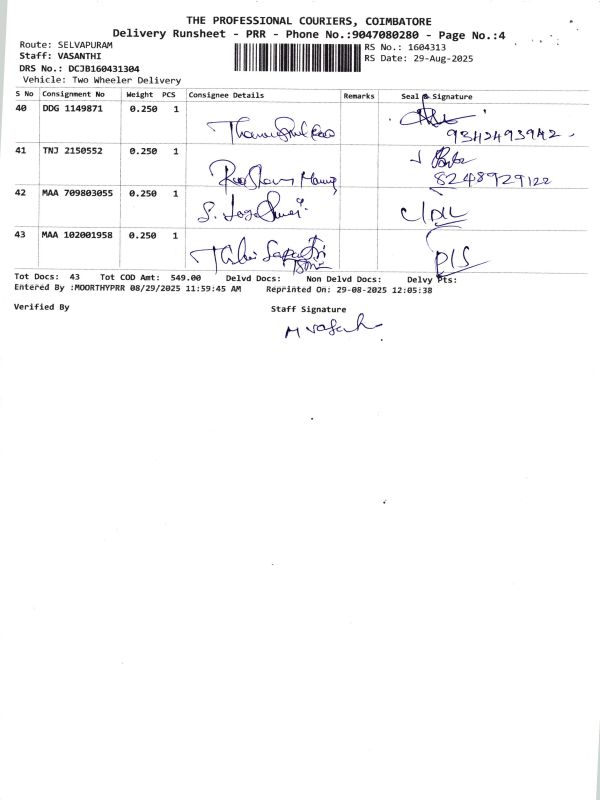 THE PROFESSIONAL COURIERS, COIMBATORE
Delivery Runsheet - PRR - Phone No.:9047080280 - Page No.:4
Route: SELVAPURAM
RS No.: 1604313
Staff: VASANTHI
RS Date: 29-Aug-2025
DRS No.: DCJB160431304
Vehicle: Two Wheeler Delivery
S No Consignment No Weight PCS Consignee Details Remarks Seal & Signature
40 DDG 1149871 0.250 1
9342493942
41 TNJ 2150552 0.250 1
8248929122
42 MAA 709803055 0.250 1
43 MAA 102001958 0.250 1
Tot Docs: 43 Tot COD Amt: 549.00 Delvd Docs: Non Delvd Docs: Delvy Pts:
Entered By :MOORTHYPRR 08/29/2025 11:59:45 AM Reprinted On: 29-08-2025 12:05:38
Verified By Staff Signature